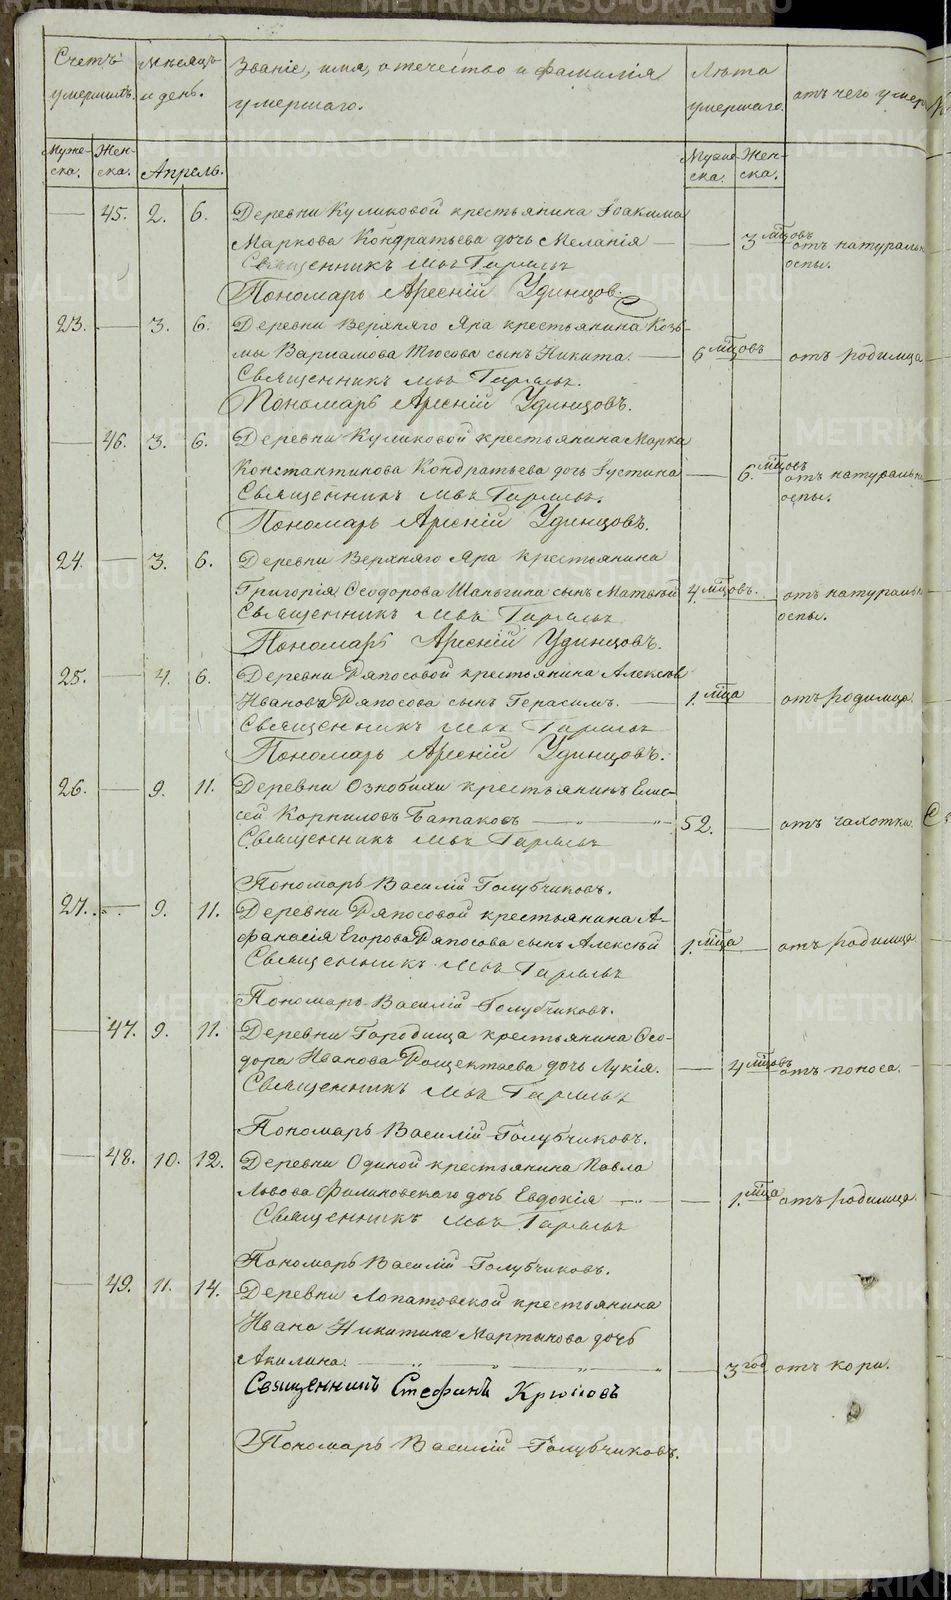 Счетъ умершихъ.
Мѣсяцъ и день.
Званіе, имя, отечество и фамилія умершаго.
Лѣта умершаго.
отъ чего умеръ
Муже-ска. Жен-ска. Апрель. Муже-ска. Жен-ска.
45. 2. 6. Деревни Куликовой крестьянина Іоакима
Маркова Кондратьева дочь Меланія — 3 мцовъ отъ натуральн
оспы.
Священникъ
Пономарь Арсеній Удинцов.
23. 3. 6. Деревни Верхняго Яра крестьянина Козь-
мы Варламова Тюсова сынъ Никита. — 6 мцовъ отъ родимца
Священникъ
Пономарь Арсеній Удинцовъ.
46. 3. 6. Деревни Куликовой крестьянина Марка
Константинова Кондратьева дочь Іустина — 6. мцовъ отъ натуральн
оспы.
Священникъ
Пономарь Арсеній Удинцовъ.
24. 3. 6. Деревни Верхняго Яра крестьянина
Григорія Ѳеодорова Шаньгина сынъ Матвѣй 4. мцовъ. отъ натуральн
оспы.
Священникъ
Пономарь Арсеній Удинцовъ.
25. 4. 6. Деревни Ряпосовой крестьянина Алексѣя
Иванова Ряпосова сынъ Герасимъ. — 1. мца отъ родимца.
Священникъ
Пономарь Арсеній Удинцовъ.
26. 9. 11. Деревни Ознобихи крестьянинъ Ели-
сей Корниловъ Батаковъ — 52. — отъ чахотки.
Священникъ
Пономарь Василій Голубчиковъ.
27. 9. 11. Деревни Ряпосовой крестьянина А-
фанасія Егорова Ряпосова сынъ Алексѣй 1. мца отъ родимца.
Священникъ
Пономарь Василій Голубчиковъ.
47. 9. 11. Деревни Городища крестьянина Ѳео-
дора Иванова Рощектаева дочь Лукія. — 4 мцовъ отъ поноса.
Священникъ
Пономарь Василій Голубчиковъ.
48. 10. 12. Деревни Одиной крестьянина Павла
Львова Филиновскаго дочь Евдокія — 1. мца отъ родимца.
Священникъ
Пономарь Василій Голубчиковъ.
49. 11. 14. Деревни Лопатовской крестьянина
Ивана Никитина Мартынова дочь
Акилина. — 3 год отъ кори.
Священникъ Стефанъ Крюковъ
Пономарь Василій Голубчиковъ.
METRIKI.GASO-URAL.RU